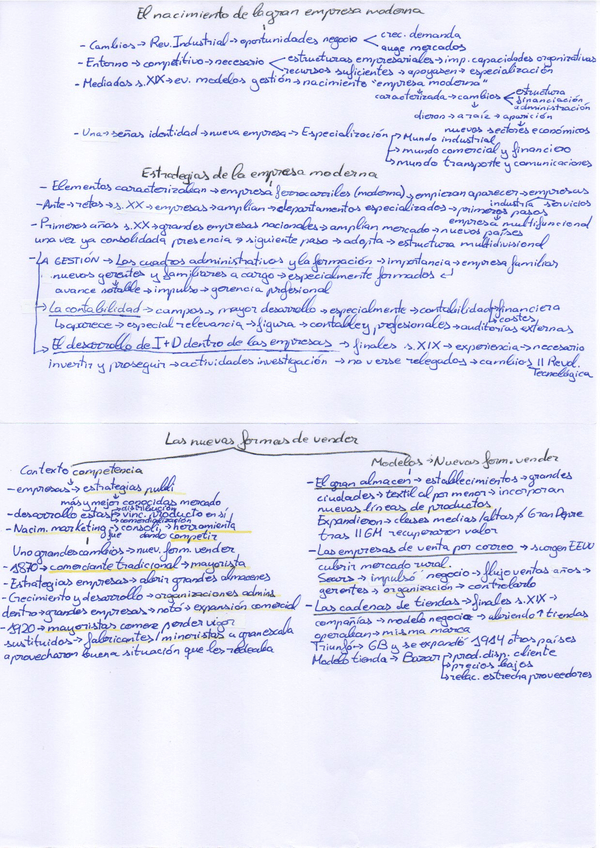 El nacimiento de la gran empresa moderna
- Cambios → Rev. Industrial → oportunidades negocio < crec. demanda
auge mercados
- Entorno → competitivo → necesario < estructuras empresariales → imp. capacidades organizativas
recursos suficientes → apoyasen → especialización
- Mediados s. XIX → ev. modelos gestión → nacimiento "empresa moderna"
caracterizada → cambios < estructura
financiación
administración
dieron → a raíz → aparición
nuevos sectores económicos
- Una → señas identidad → nueva empresa → Especialización → Mundo industrial
→ mundo comercial y financiero
→ mundo transporte y comunicaciones
Estrategias de la empresa moderna
- Elementos caracterizaban → empresa ferrocarriles (moderna), empiezan aparecer → empresas
industria servicios
- Ante → retos → s. XX → empresas → amplian → departamentos especializados → primeros pasos
empresa multifuncional
- Primeros años s. XX → grandes empresas nacionales → amplian mercado → nuevos países
una vez ya consolidada presencia → siguiente paso → adopta → estructura multidivisional
- LA GESTIÓN → Los cuadros administrativos y la formación → importancia → empresa familiar
nuevos gerentes y familiares a cargo → especialmente formados
avance notable → impulso → gerencia profesional
→ La contabilidad → campos → mayor desarrollo → especialmente → contabilidad → financiera
→ costes
↳ aparece → especial relevancia → figura → contable y profesionales → auditorías externas
→ El desarrollo de I+D dentro de las empresas → finales s. XIX → experiencia → necesario
invertir y proseguir → actividades investigación → no verse relegados → cambios II Revol.
Tecnológica
Las nuevas formas de vender
Contexto competencia
- empresas → estrategias publi
más y mejor conocidas mercado
- desarrollo estas → vinc. producto en sí
→ distribución
→ comercialización
- Nacim. marketing → consoli. → herramienta
que dando competir
Uno grandes cambios → nuev. form. vender
- 1870 → comerciante tradicional → mayorista
- Estrategias empresas → abrir grandes almacenes
- Crecimiento y desarrollo → organizaciones admis.
dentro → grandes empresas → notó → expansión comercial
- 1920 → mayoristas comenz. perder vigor
sustituidos → fabricantes / minoristas a gran escala
aprovecharon buena situación que les rodeaba
Modelos → Nuevas form. vender
- El gran almacen → establecimientos → grandes
ciudades → textil al por menor → incorporan
nuevas líneas de productos
Expandieron → clases medias /altas
tras II GM recuperaron valor
- Las empresas de venta por correo → surgen EEUU
cubrir mercado rural.
Sears → impulsó negocio → flujo ventas años →
gerentes → organización → controlarlo
- Las cadenas de tiendas → finales s. XIX →
compañías → modelo negocio → abriendo ↑ tiendas
operaban → misma marca
Triunfó → GB y se expandó 1914 otros países
Modelo tienda → Bazar → prod. disp. cliente
→ precios bajos
→ relac. estrecha proveedores